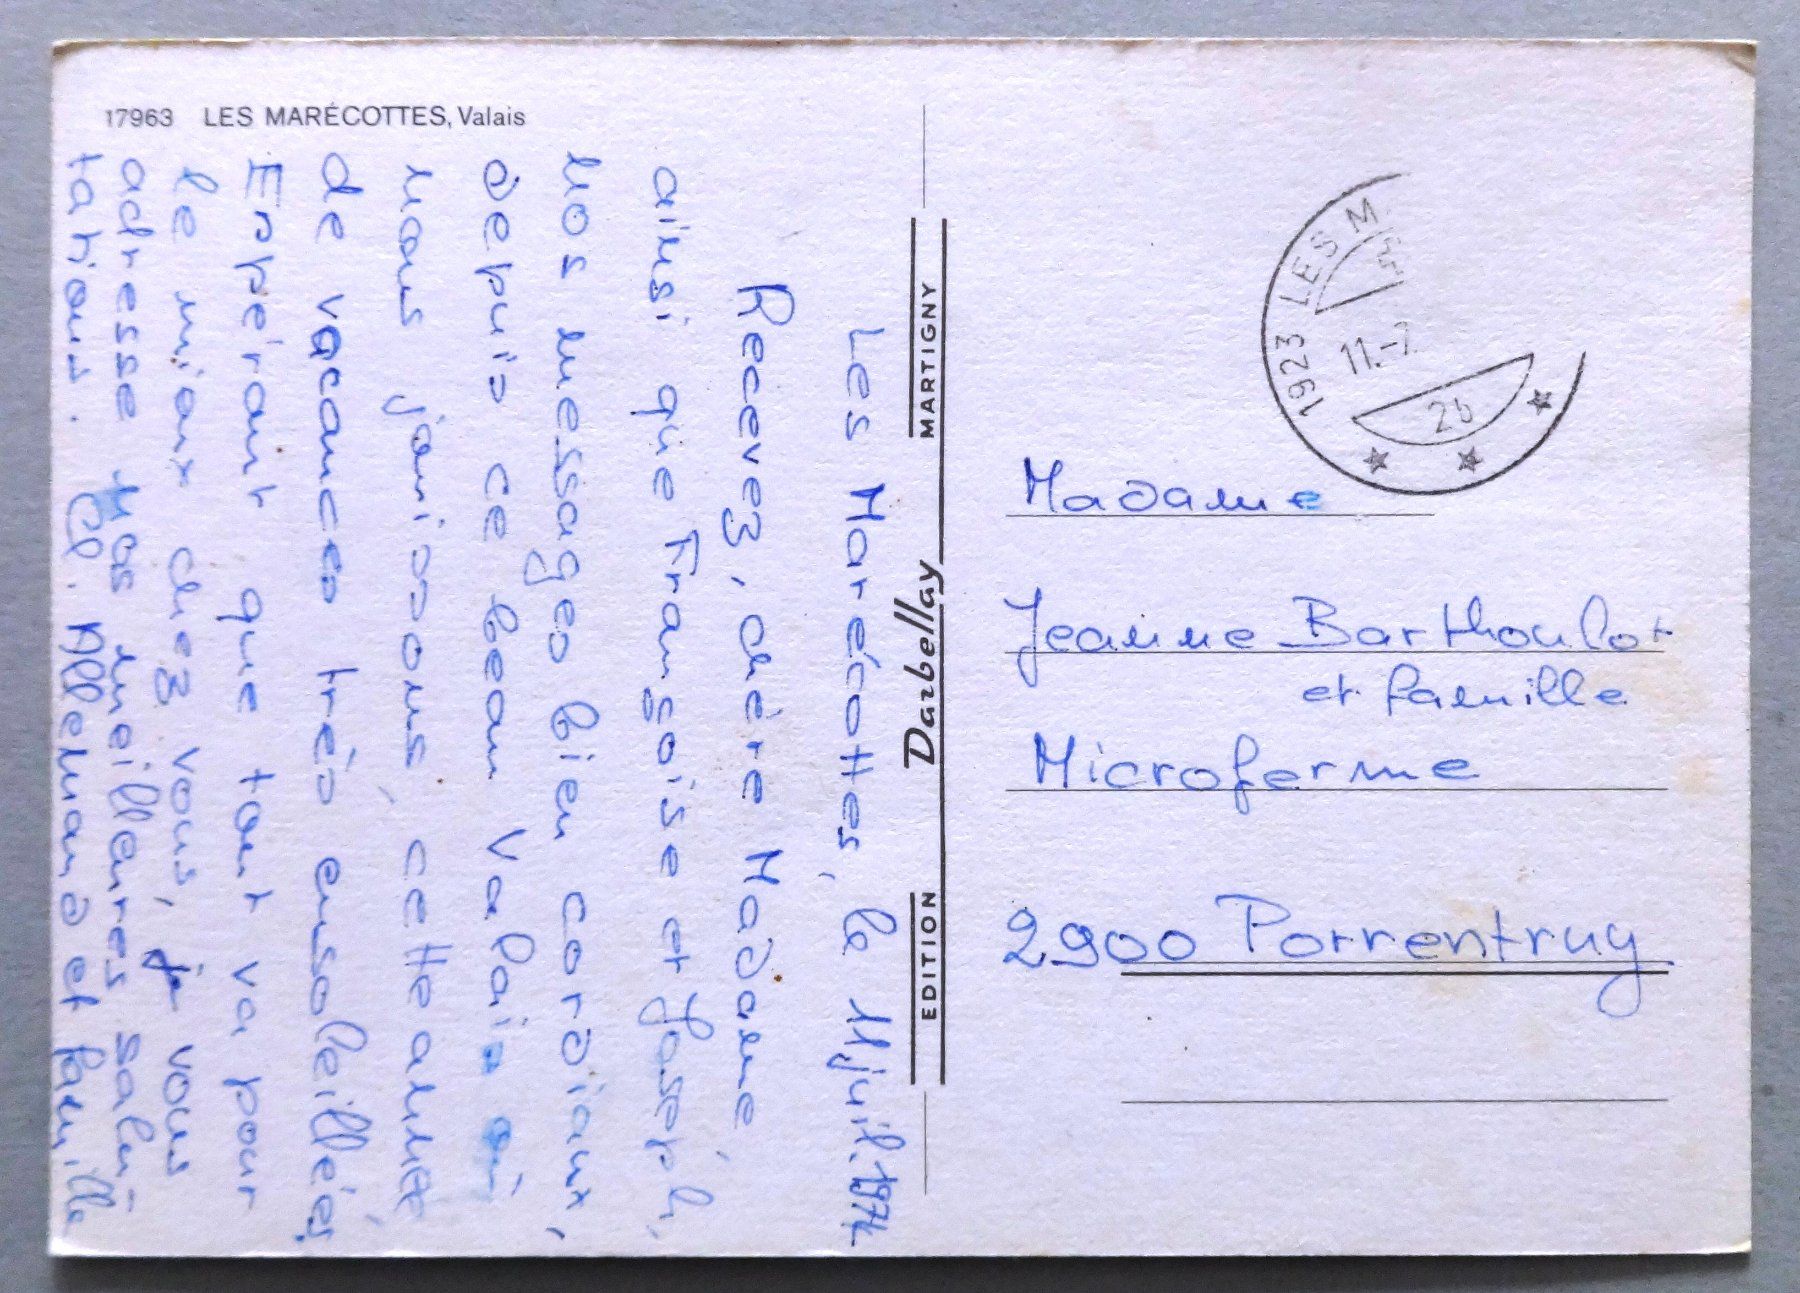 17963 LES MARÉCOTTES, Valais
Les Marécottes, le 11 juil. 1974
Recevez, chère Madame,
ainsi que Françoise et Joseph,
nos messages bien cordiaux,
depuis ce beau Valais où
nous jouissons, cette année,
de vacances très ensoleillées.
Espérant que tout va pour
le mieux chez vous, je vous
adresse nos meilleures salu-
tations. Cl. Allemand et famille
EDITION Darbellay MARTIGNY
1923 LES M
11.-7
Madame
Jeanne Barthoulot
et famille
Microferme
2900 Porrentruy